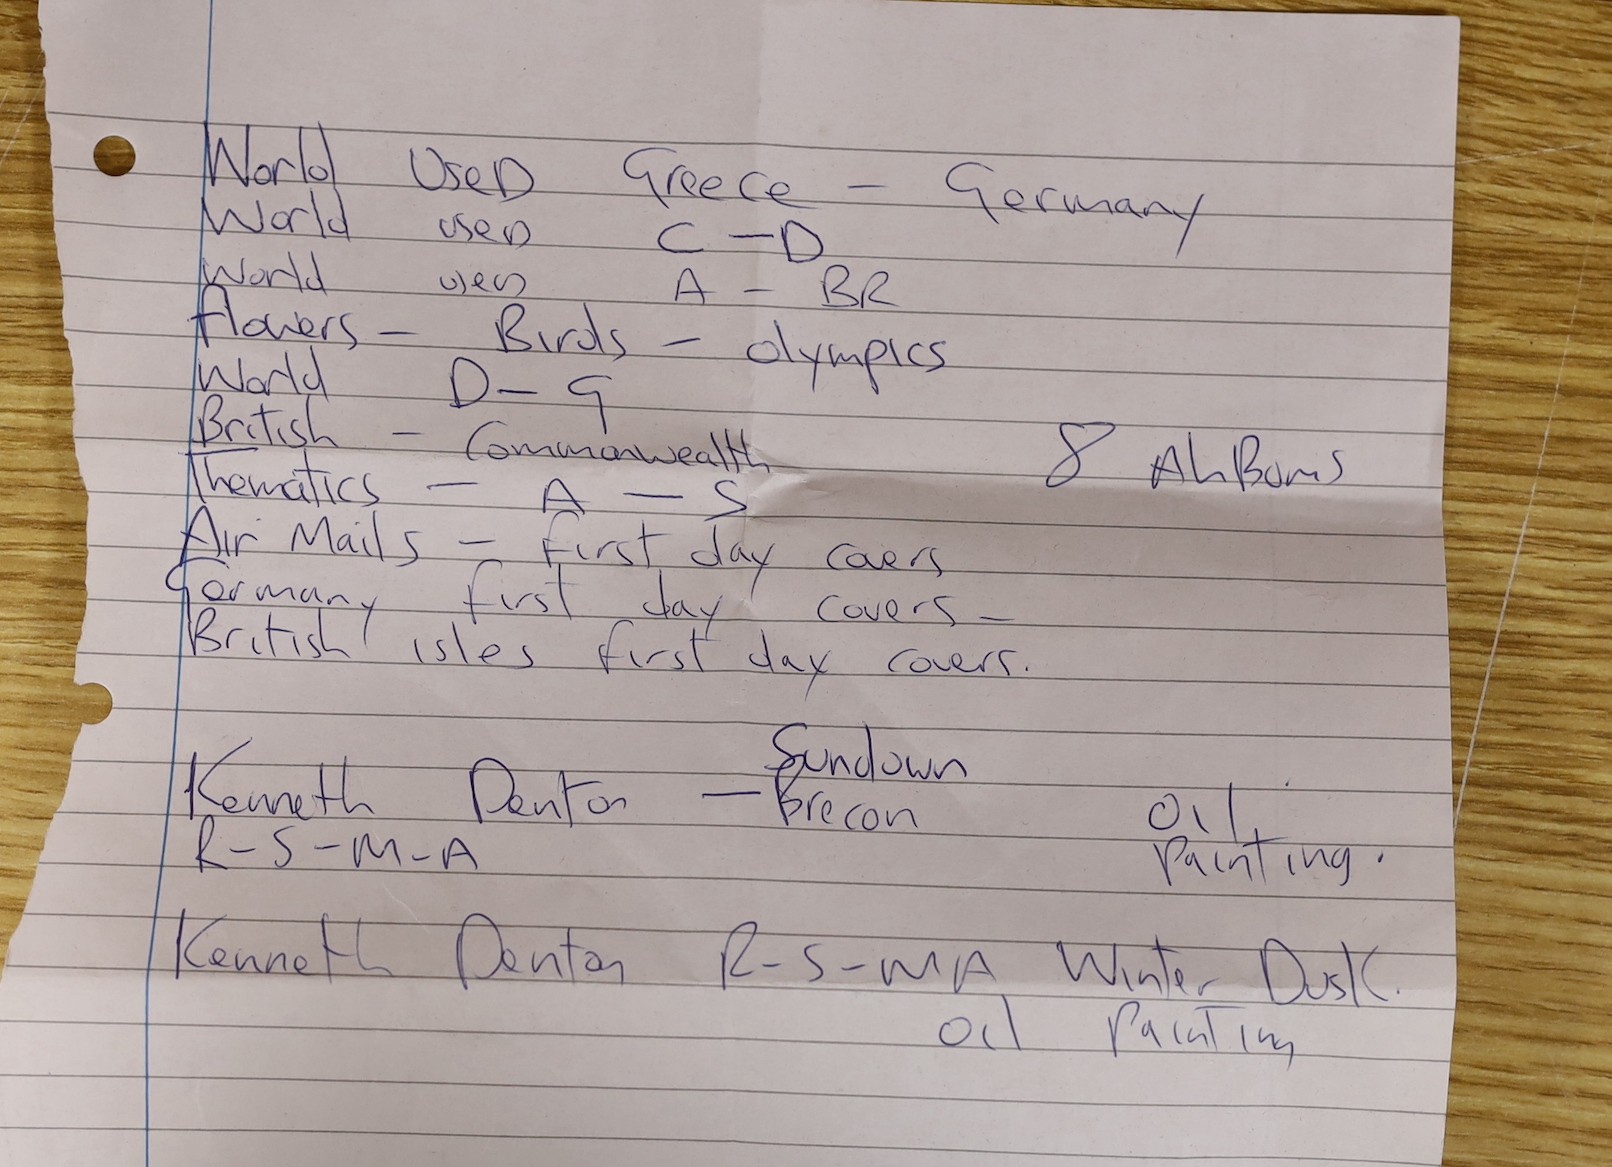 World UseD Greece - Germany
World useD C - D
World used A - BR
Flowers - Birds - olympics
World D - G
British - Commonwealth
8 AhBoms
Thematics - A - S
Air Mails - first day covers
Germany first day covers -
British isles first day covers.
Sundown
Kenneth Denton - Brecon Oil
R-S-M-A Painting.
Kenneth Denton R-S-MA Winter Dusk.
Oil Painting